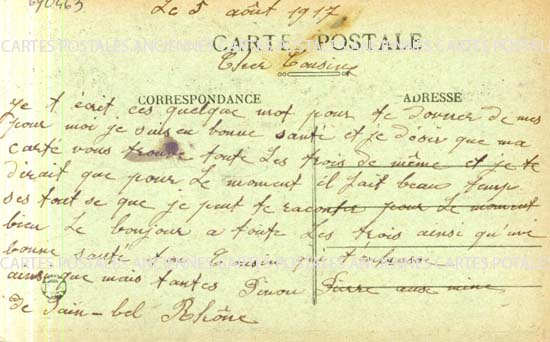 690463
Le 5 août 1917
CARTES POSTALES ANCIENNES
CARTE POSTALE
Cher Cousin
CORRESPONDANCE ADRESSE
Je t écrit ces quelque mot pour te donner de mes
pour moi je suis en bonne santé et je désir que ma
carte vous trouve toute Les trois de même et je te
dirait que pour Le moment il fait beau temp
ses tout se que je peut te raconter pour Le moment
bien Le bonjour a toute Les trois ainsi qu'une
bonne santé Ton Cousin qui t'embrasse
ainsi que mais tantes
de Sain-bel Rhône